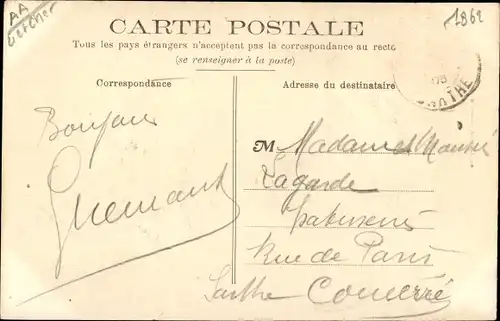 AA
1862
CARTE POSTALE
Tous les pays étrangers n'acceptent pas la correspondance au recto
(se renseigner à la poste)
Correspondance
Adresse du destinataire
Bonjour
M Madame
Lagarde
Rue de Paris
Sarthe Connerré